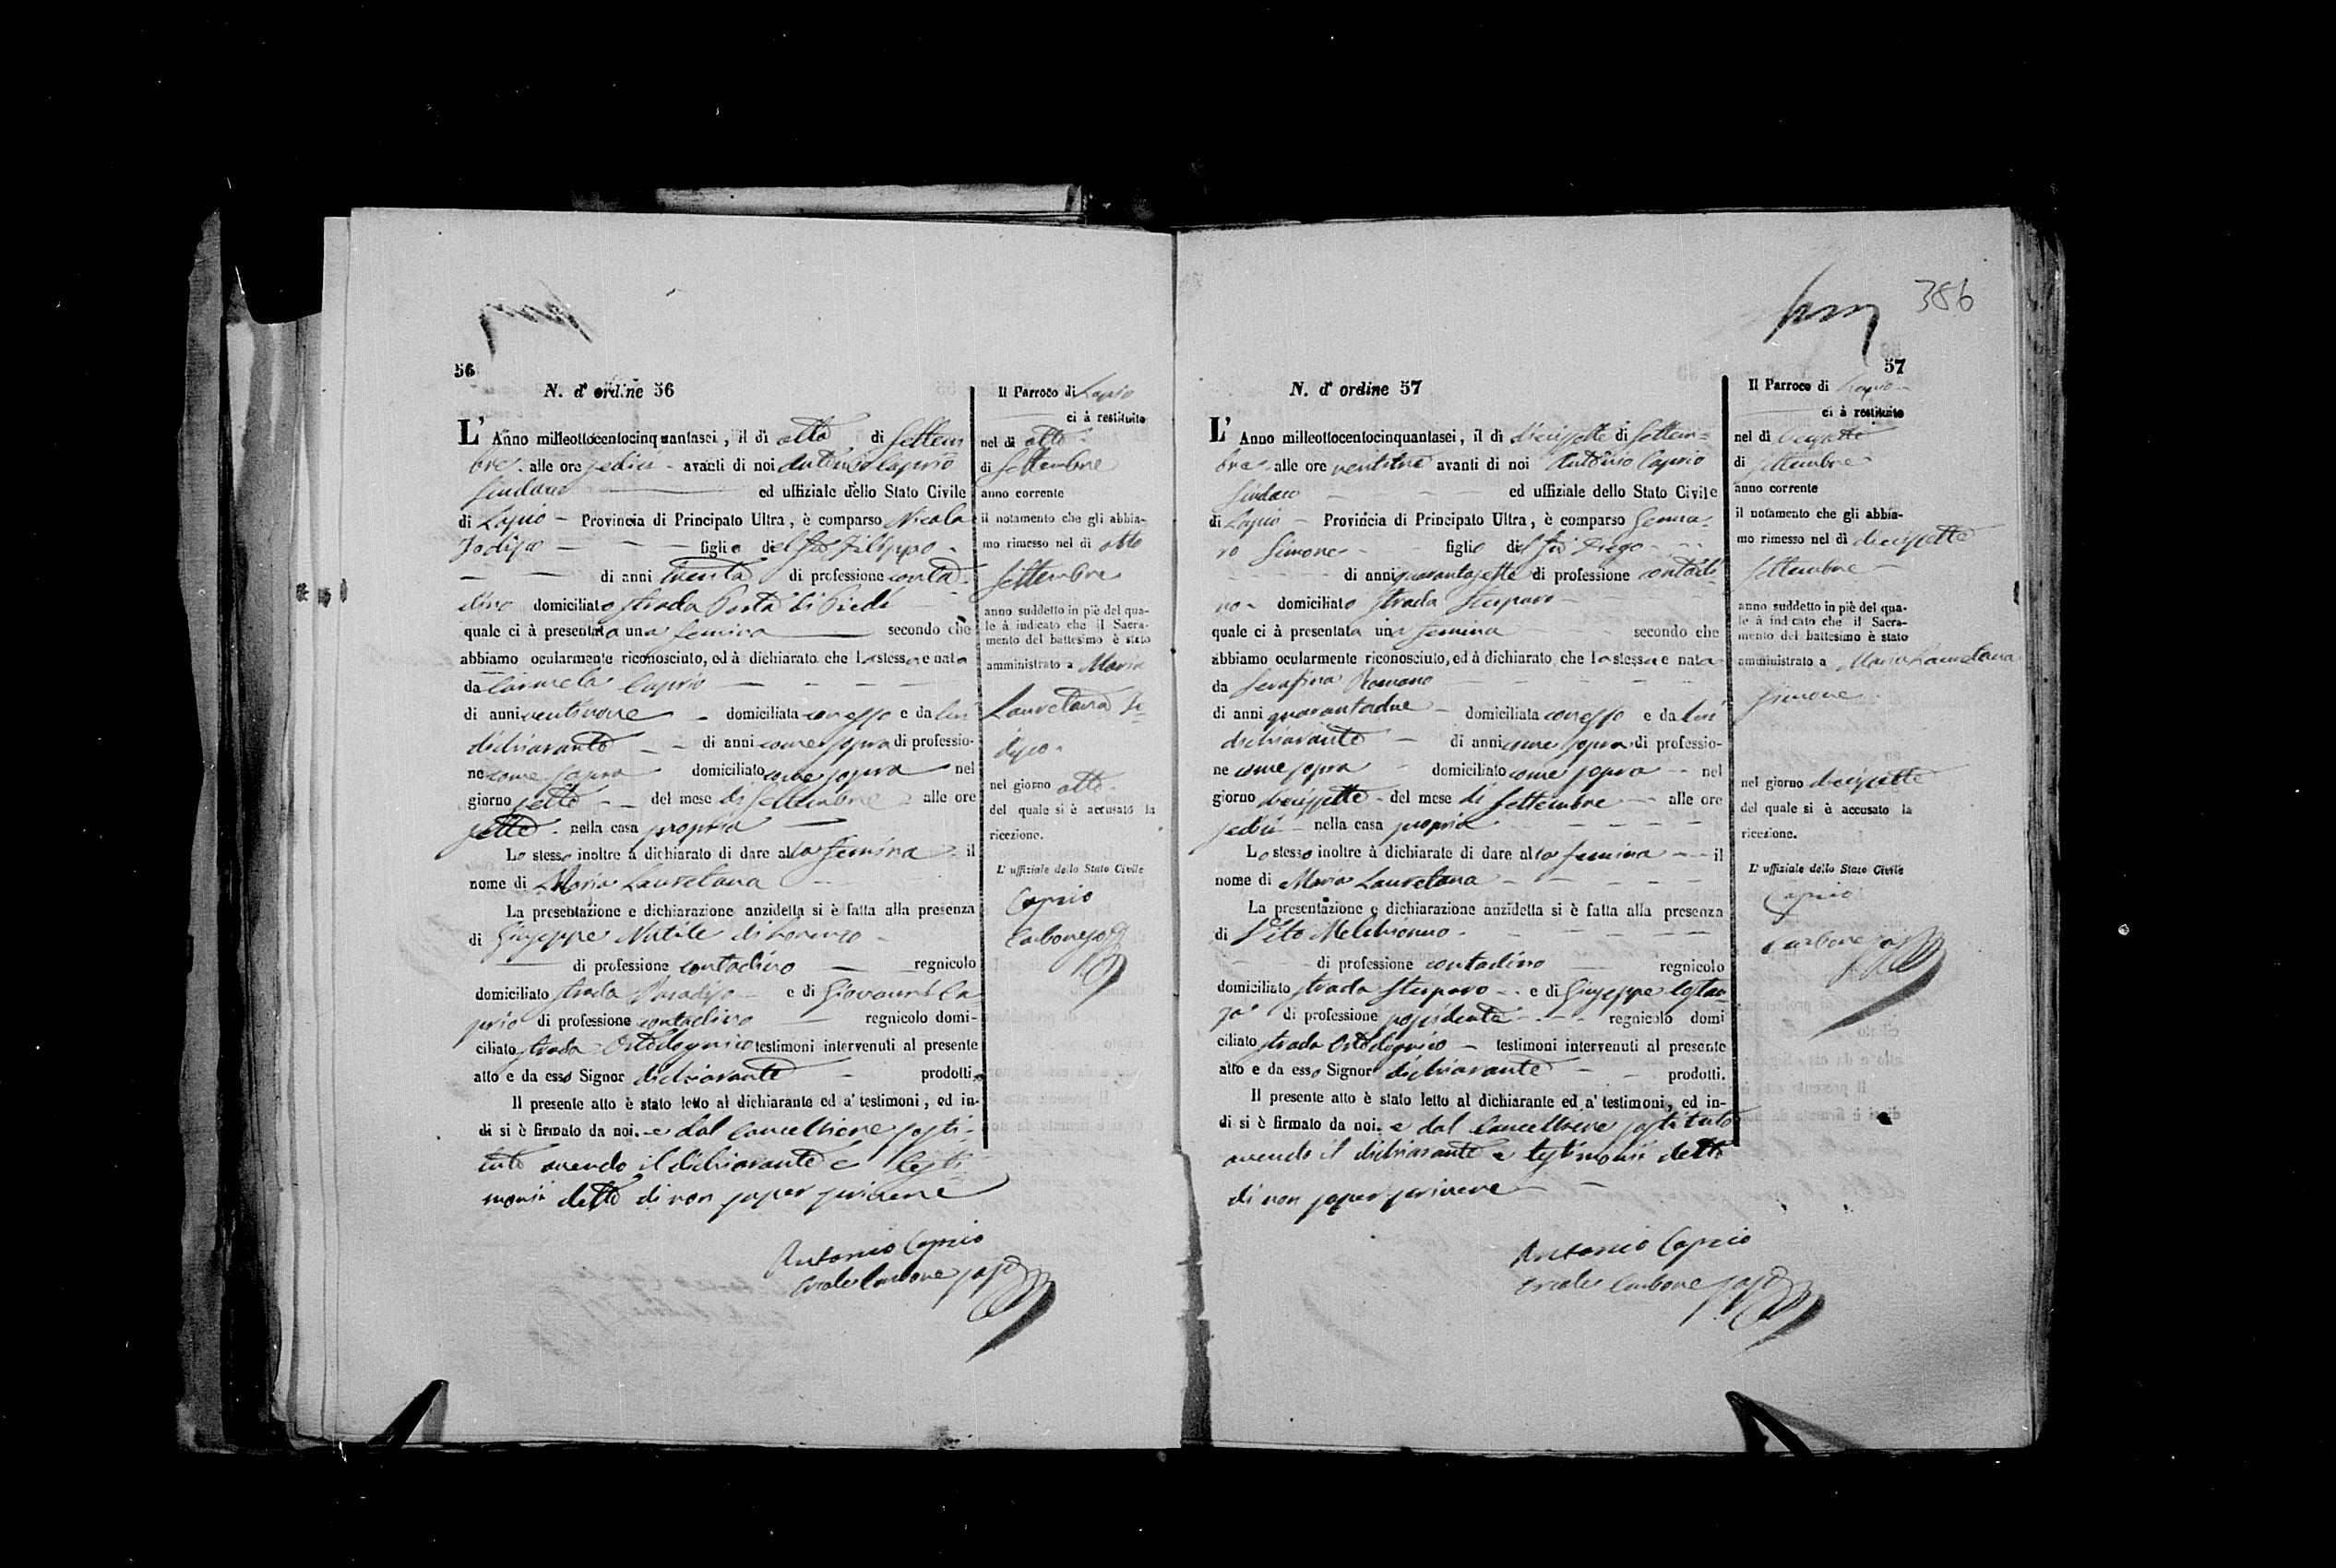 56
N. d' ordine 56
L' Anno milleottocentocinquantasei, il dì otto di Settem
bre alle ore sedici avanti di noi Antonio Caprio
Sindaco ed uffiziale dello Stato Civile
di Lapio Provincia di Principato Ultra, è comparso Nicola
figlio del fu Filippo
di anni trenta di professione conta
dino domiciliato strada Porta di Piedi
quale ci à presentata una femina secondo che
abbiamo ocularmente riconosciuto, ed à dichiarato che la stessa e nata
da Carmela Caprio
di anni ventinove domiciliata con esso e da lui
dichiarante di anni come sopra di professio-
ne come sopra domiciliato come sopra nel
giorno sette del mese di Settembre alle ore
sette nella casa propria
Lo stesso inoltre à dichiarato di dare alla femina il
nome di Maria Lauretana
La presentazione e dichiarazione anzidetta si è fatta alla presenza
di Giuseppe Nutile di Lorenzo
di professione contadino regnicolo
domiciliato strada Paradiso e di Giovanni Ca
prio di professione contadino regnicolo domi-
ciliato strada testimoni intervenuti al presente
atto e da esso Signor dichiarante prodotti.
Il presente atto è stato letto al dichiarante ed a' testimoni, ed in-
di si è firmato da noi. e dal Cancelliere sosti-
tuto avendo il dichiarante e testi-
monii detto di non saper scrivere
Antonio Caprio
Carbone
Il Parroco di Lapio
ci à restituito
nel dì otto
di Settembre
anno corrente
il notamento che gli abbia-
mo rimesso nel dì otto
Settembre
anno suddetto in piè del qua-
le à indicato che il Sacra-
mento del battesimo è stato
amministrato a Maria
Lauretana
nel giorno otto
del quale si è accusato la
ricezione.
L' uffiziale dello Stato Civile
Caprio
Carbone
386
57
N. d' ordine 57
L' Anno milleottocentocinquantasei, il dì diecisette di Settem-
bre alle ore ventitre avanti di noi Antonio Caprio
Sindaco ed uffiziale dello Stato Civile
di Lapio Provincia di Principato Ultra, è comparso Genna-
ro Simone figlio del fu Diego
di anni quarantasette di professione contadi-
no domiciliato strada Sterparo
quale ci à presentata una femina secondo che
abbiamo ocularmente riconosciuto, ed à dichiarato, che la stessa e nata
da Serafina Romano
di anni quarantadue domiciliata con esso e da lui
dichiarante di anni come sopra di professio-
ne come sopra domiciliato come sopra nel
giorno diecissette del mese di Settembre alle ore
sedici nella casa propria
Lo stesso inoltre à dichiarato di dare alla femina il
nome di Maria Lauretana
La presentazione e dichiarazione anzidetta si è fatta alla presenza
di Vito Melchionno
di professione contadino regnicolo
domiciliato strada Sterparo e di Giuseppe Costan-
za di professione possidente regnicolo domi
ciliato strada testimoni intervenuti al presente
atto e da esso Signor dichiarante prodotti.
Il presente atto è stato letto al dichiarante ed a' testimoni, ed in-
di si è firmato da noi. e dal Cancelliere sostituto
avendo il dichiarante e testimonii detto
di non saper scrivere
Antonio Caprio
Carbone
Il Parroco di Lapio
ci à restituito
nel dì
di Settembre
anno corrente
il notamento che gli abbia-
mo rimesso nel dì diecisette
Settembre
anno suddetto in piè del qua-
le à indicato che il Sacra-
mento del battesimo è stato
amministrato a Maria Lauretana
Simone
nel giorno diecisette
del quale si è accusato la
ricezione.
L' uffiziale dello Stato Civile
Caprio
Carbone